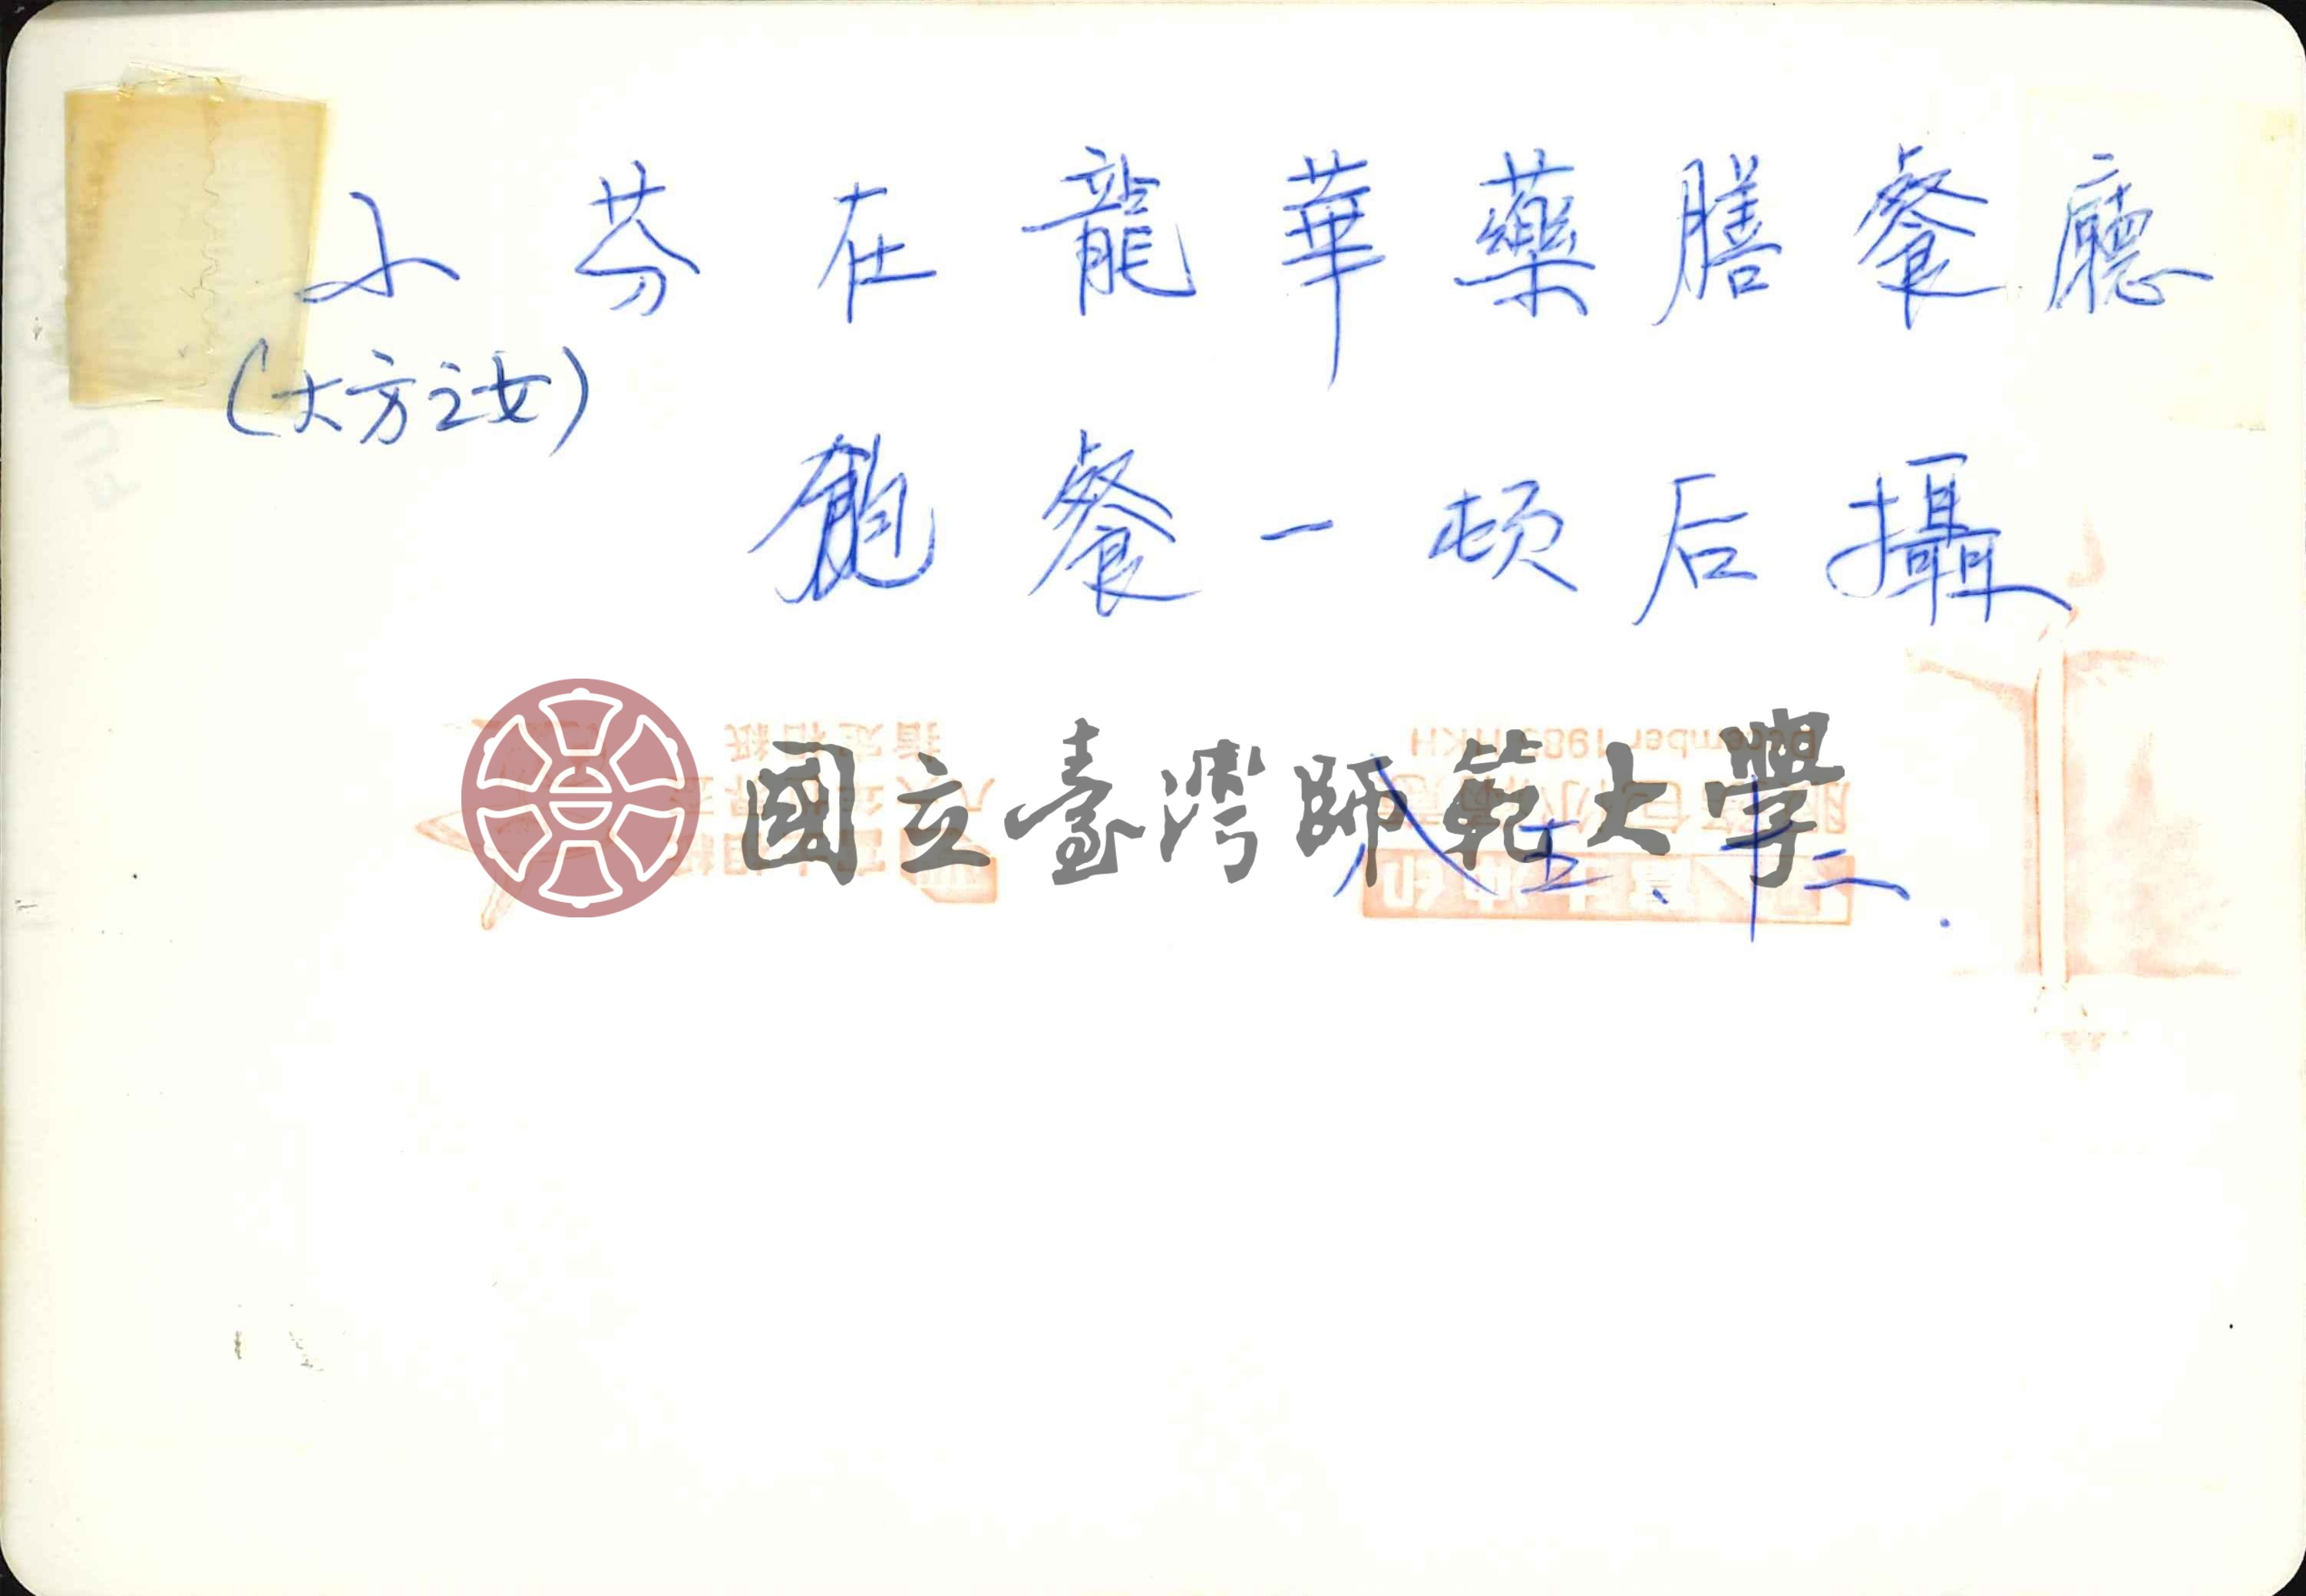 小芬在龍華藥膳餐廳
(大方之女)
飽餐一頓后攝
國立臺灣師範大學
八五、十二.
December 1985 HKH
富士沖印